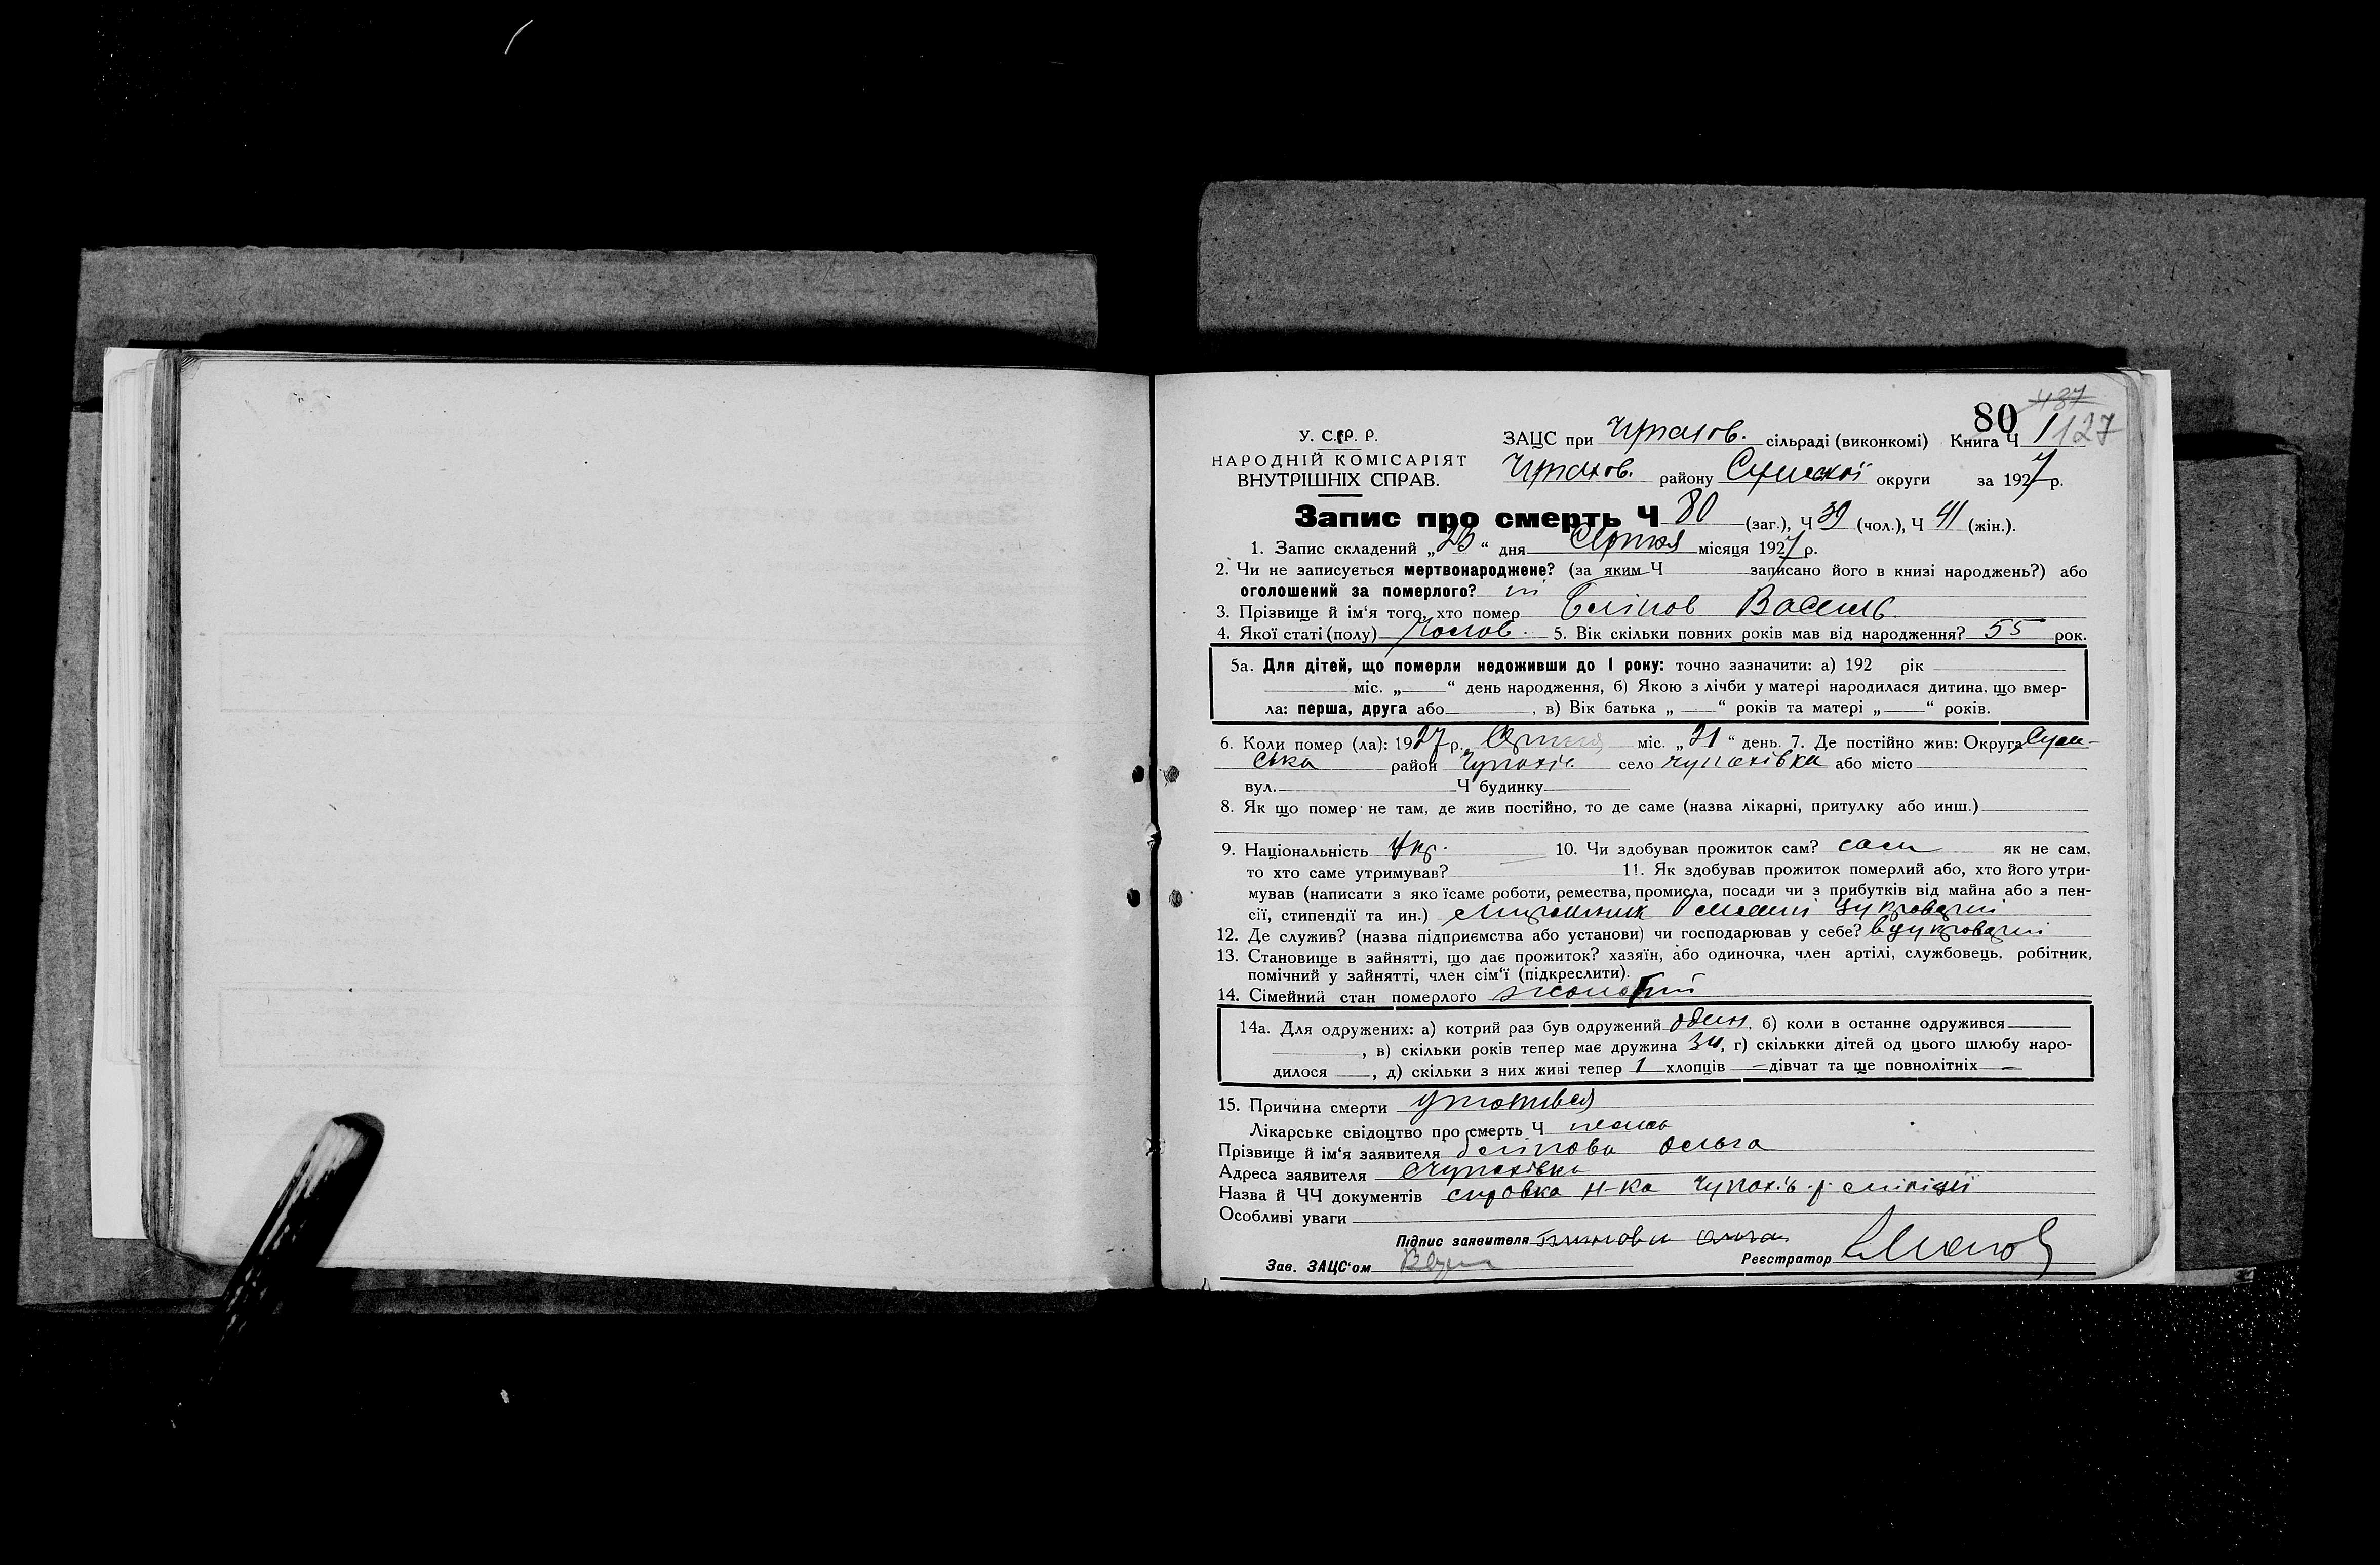 80 437
127
У. С. Р. Р.
НАРОДНІЙ КОМІСАРІЯТ
ВНУТРІШНІХ СПРАВ.
ЗАЦС при Чупахов. сільраді (виконкомі) Книга Ч 1
Чупахов. району Сумської округи за 1927 р.
Запис про смерть Ч 80 (заг.), Ч 39 (чол.), Ч 41 (жін.).
1. Запис складений „ “ дня Серпня місяця 1927 р.
2. Чи не записується мертвонароджене? (за яким Ч записано його в книзі народжень?) або
оголошений за померлого? ні
3. Прізвище й ім‘я того, хто помер Василь
4. Якої статі (полу) Чолов. 5. Вік скільки повних років мав від народження? 55 рок.
5а. Для дітей, що померли недоживши до 1 року: точно зазначити: а) 192 рік
міс. „ “ день народження, б) Якою з лічби у матері народилася дитина, що вмер-
ла: перша, друга або , в) Вік батька „ “ років та матері „ “ років.
6. Коли помер (ла): 1927 р. Серпня міс. „21“ день. 7. Де постійно жив: Округа Сум-
ська район Чупахів. село Чупахівка або місто
вул. Ч будинку
8. Як що помер не там, де жив постійно, то де саме (назва лікарні, притулку або инш.)
9. Національність Укр. 10. Чи здобував прожиток сам? сам як не сам,
то хто саме утримував? 11. Як здобував прожиток померлий або, хто його утри-
мував (написати з яко їсаме роботи, ремества, промисла, посади чи з прибутків від майна або з пен-
сії, стипендії та ин.) цукроварні
12. Де служив? (назва підприємства або установи) чи господарював у себе? в цукроварні
13. Становище в зайнятті, що дає прожиток? хазяїн, або одиночка, член артілі, службовець, робітник,
помічний у зайнятті, член сім‘ї (підкреслити).
14. Сімейний стан померлого жонатий
14а. Для одружених: а) котрий раз був одружений один, б) коли в останнє одружився
, в) скільки років тепер має дружина , г) скількки дітей од цього шлюбу наро-
дилося , д) скільки з них живі тепер 1 хлопців — дівчат та ще повнолітніх —
15. Причина смерти утопився
Лікарське свідоцтво про смерть Ч нема
Прізвище й ім‘я заявителя Ольга
Адреса заявителя с Чупахівка
Назва й ЧЧ документів справка Н-ка Чупахів. р. міліції
Особливі уваги
Підпис заявителя
Зав. ЗАЦС‘ом Реєстратор